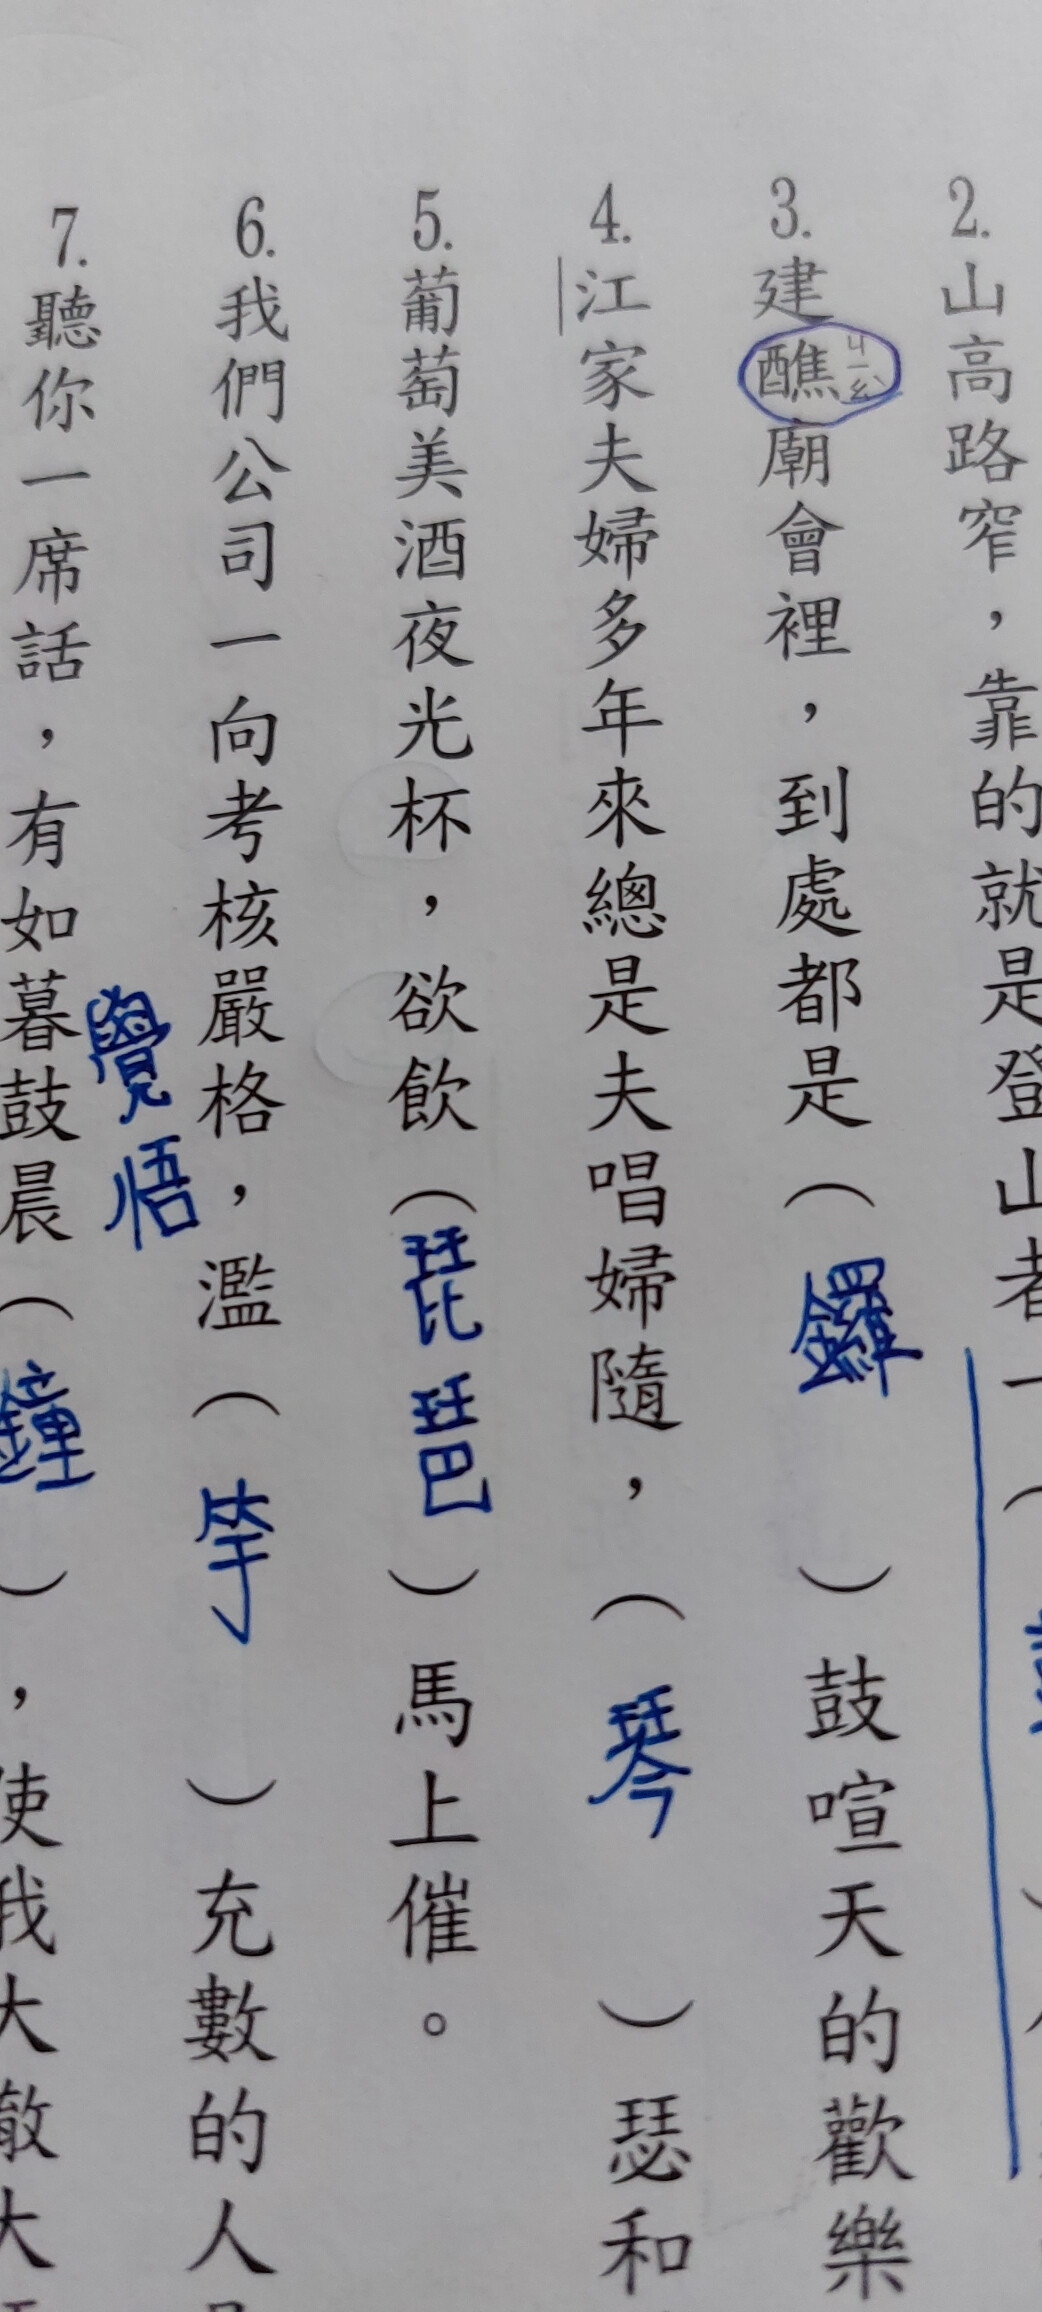 2.山高路窄，靠的就是登山者一（
3.建醮ㄐㄧㄠˋ廟會裡，到處都是（鑼）鼓喧天的歡樂
4.江家夫婦多年來總是夫唱婦隨，（琴）瑟和
5.葡萄美酒夜光杯，欲飲（琵琶）馬上催。
6.我們公司一向考核嚴格，濫（竽）充數的人
覺悟
7.聽你一席話，有如暮鼓晨（鐘），使我大徹大